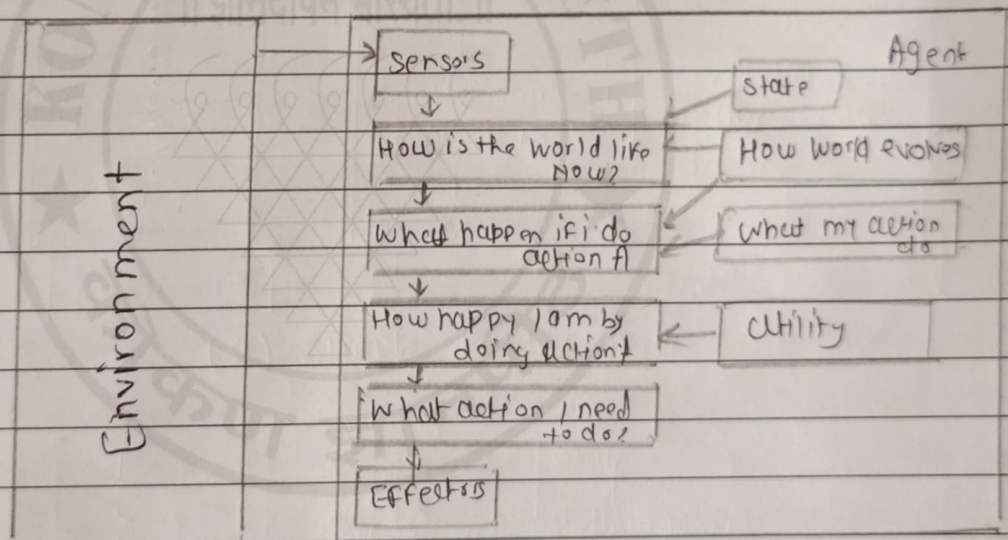 Agent
Sensors
State
How is the world like
Now?
How world evolves
What happen if i do
action A
What my action
do
How happy I am by
doing action?
Utility
What action I need
to do?
Effectors
Environment